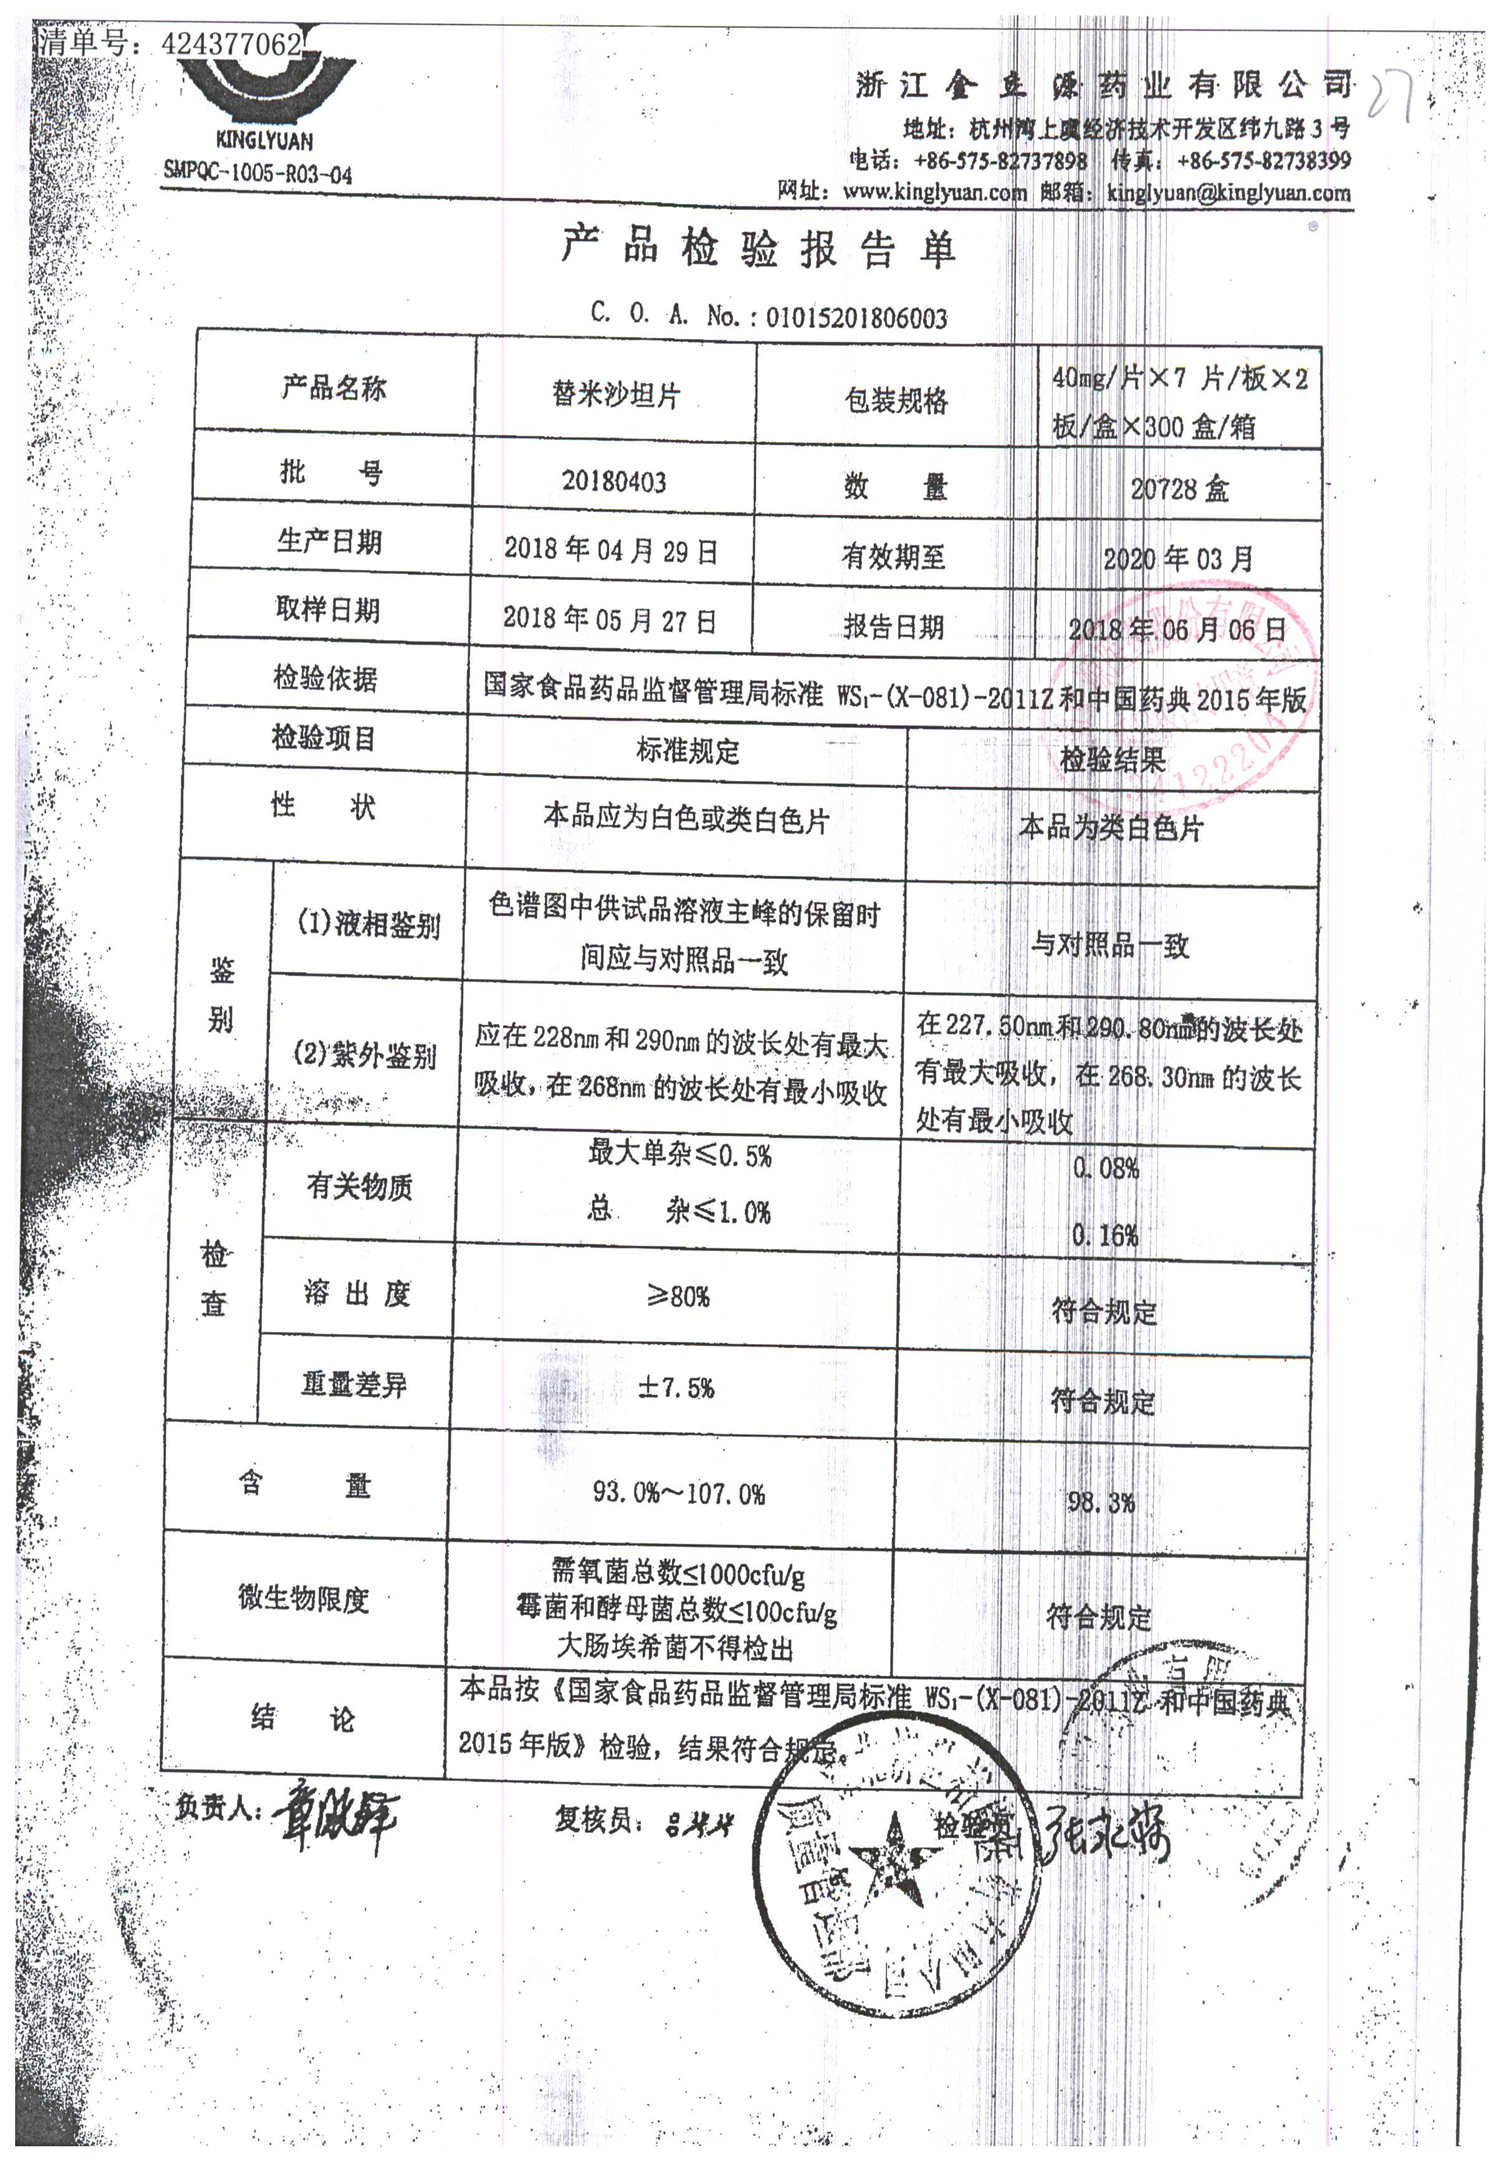 清单号：424377062
KINGLYUAN
SMPQC-1005-R03-04
浙江金立源药业有限公司
27
地址：杭州湾上虞经济技术开发区纬九路3号
电话：+86-575-82737898 传真：+86-575-82738399
网址：www.kinglyuan.com 邮箱：kinglyuan@kinglyuan.com
产品检验报告单
C. O. A. No.：01015201806003
产品名称 替米沙坦片 包装规格 40mg/片×7 片/板×2
板/盒×300 盒/箱
批 号 20180403 数 量 20728 盒
生产日期 2018 年 04 月 29 日 有效期至 2020 年 03 月
取样日期 2018 年 05 月 27 日 报告日期 2018 年 06 月 06 日
检验依据 国家食品药品监督管理局标准 WS₁-(X-081)-2011Z 和中国药典 2015 年版
检验项目 标准规定 检验结果
性 状 本品应为白色或类白色片 本品为类白色片
鉴别
(1)液相鉴别 色谱图中供试品溶液主峰的保留时
间应与对照品一致
与对照品一致
(2)紫外鉴别 应在 228nm 和 290nm 的波长处有最大
吸收，在 268nm 的波长处有最小吸收
在 227.50nm 和 290.80nm 的波长处
有最大吸收，在 268.30nm 的波长
处有最小吸收
检查
有关物质 最大单杂≤0.5% 0.08%
总 杂≤1.0% 0.16%
溶 出 度 ≥80% 符合规定
重量差异 ±7.5% 符合规定
含 量 93.0%～107.0% 98.3%
微生物限度 需氧菌总数≤1000cfu/g
霉菌和酵母菌总数≤100cfu/g
大肠埃希菌不得检出
符合规定
结 论 本品按《国家食品药品监督管理局标准 WS₁-(X-081)-2011Z 和中国药典
2015 年版》检验，结果符合规定。
负责人： 复核员： 检验员：
质量管理部
股份有限公司